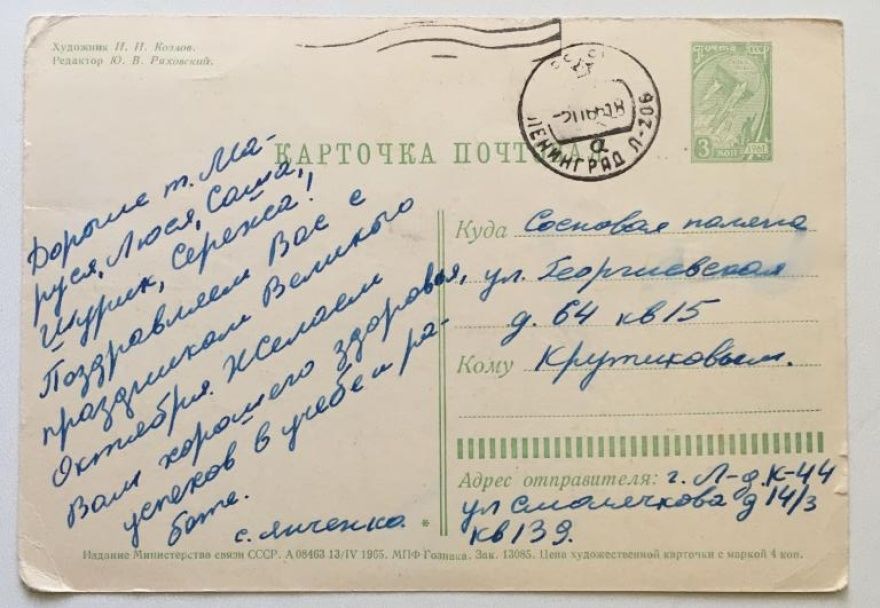 Художник И. И. Козлов.
Редактор Ю. В. Ряховский.
ПОЧТА СССР
3 КОП 1961
ЛЕНИНГРАД Л-206
а
КАРТОЧКА ПОЧТОВАЯ
Дорогие т. Ма-
руся, Люся, Саша,
Шурик, Сережа!
Поздравляем Вас с
праздником Великого
Октября. Желаем
Вам хорошего здоровья,
успехов в учебе и ра-
боте.
с. Янченко.
Куда Сосновая поляна
ул. Георгиевская
д. 64 кв 15
Кому Крутиковым.
Адрес отправителя: г. Л-д, К-44
ул Смолячкова д 14/3
кв 139.
*
Издание Министерства связи СССР. А 08463 13/IV 1965. МПФ Гознака. Зак. 13085. Цена художественной карточки с маркой 4 коп.